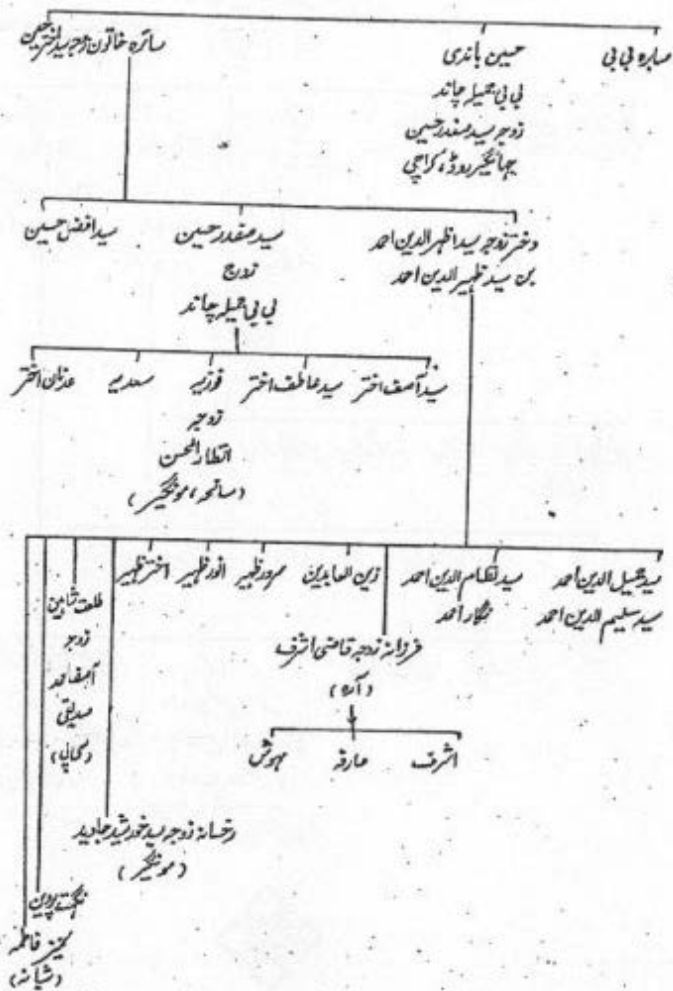 صابرہ بی بی
حسین باندی
سائرہ خاتون زوجہ سید اختر حسین
بی بی جمیلہ چاند
زوجہ سید صفدر حسین
جہانگیر روڈ، کراچی
دختر زوجہ سید اظہر الدین احمد
بن سید ظہیر الدین احمد
سید صفدر حسین
زوج
بی بی جمیلہ چاند
سید افضل حسین
سید آصف اختر
سید عاطف اختر
فوزیہ
زوجہ
انتظار الحسن
(سانحہ، مونگیر)
سعدیہ
عدنان اختر
سید جمیل الدین احمد
سید سلیم الدین احمد
سید نظام الدین احمد
نگار احمد
زین العابدین
سرور ظہیر
انور ظہیر
اختر ظہیر
فرزانہ زوجہ قاضی اشرف
(آرہ)
اشرف
عارفہ
مہوش
طلعت شاہین
زوجہ
آصف احمد
صدیقی
رخسانہ زوجہ سید خورشید جاوید
(مونگیر)
نگہت پروین
کنیز فاطمہ
(شبانہ)